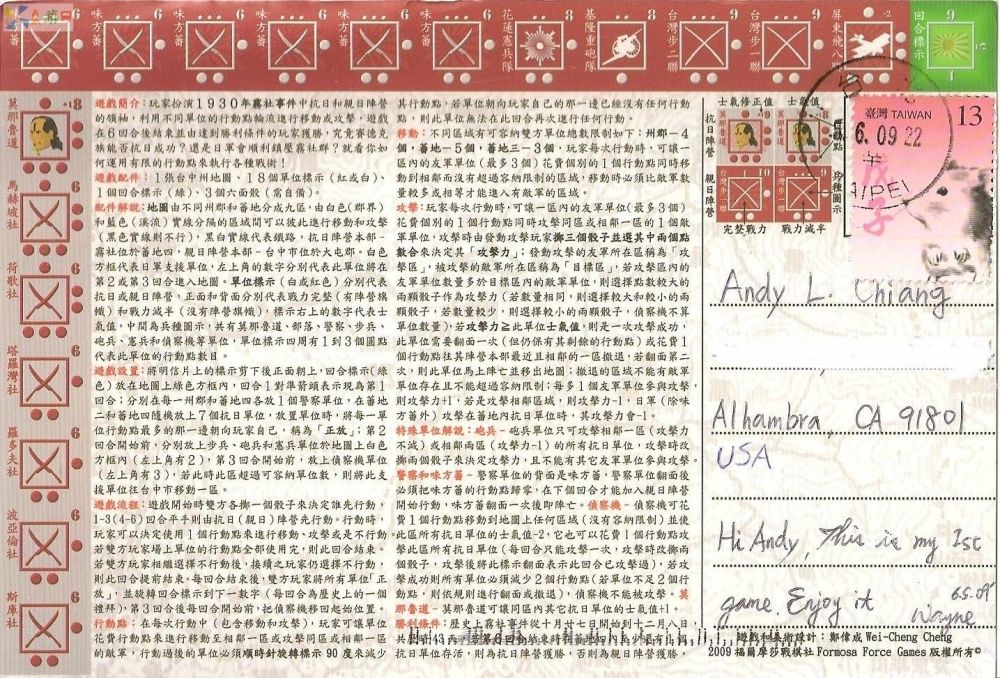 味方蕃 6
味方蕃 6
味方蕃 6
味方蕃 6
味方蕃 6
花蓮憲兵隊 8
基隆重砲隊 8
台灣步二聯 9
台灣步一聯 9
屏東飛 -2
回合標示 9 5 4
莫那魯道 +1 8
馬赫坡社 6
荷歌社 6
塔羅灣社 6
羅多夫社 6
波亞倫社 6
斯庫社 6
遊戲簡介:玩家扮演1930年霧社事件中抗日和親日陣營
的領袖,利用不同單位的行動點輪流進行移動或攻擊,遊戲
在6回合後結束並由達到勝利條件的玩家獲勝,究竟賽德克
族能否抗日成功?還是日軍會順利鎮壓霧社群?就看你如
何運用有限的行動點來執行各種戰術!
遊戲配件:1張台中州地圖、18個單位標示(紅或白)、
1個回合標示(綠)、3個六面骰(需自備)。
配件解說:地圖由不同州郡和蕃地分成九區,由白色(郡界)
和藍色(溪流)實線分隔的區域間可以彼此進行移動和攻擊
(黑色實線則不行),黑白實線代表鐵路,抗日陣營本部-
霧社位於蕃地四,親日陣營本部-台中市位於大屯郡。白色
方框代表日軍支援單位,左上角的數字分別代表此單位將在
第2或第3回合進入地圖。單位標示(白或紅色)分別代表
抗日或親日陣營,正面和背面分別代表戰力完整(有陣營旗
幟)和戰力減半(沒有陣營旗幟),標示右上的數字代表士
氣值,中間為兵種圖示,共有莫那魯道、部落、警察、步兵、
砲兵、憲兵和偵察機等單位,單位標示四周有1到3個圓點
代表此單位的行動點數目。
遊戲設置:將明信片上的標示剪下後正面朝上,回合標示(綠
色)放在地圖上綠色方框內,回合1對準箭頭表示現為第1
回合;分別在每一州郡和蕃地四各放1個警察單位,在蕃地
二和蕃地四隨機放上7個抗日單位,放置單位時,將每一單
位行動點最多的那一邊朝向玩家自己,稱為「正放」;第2
回合開始前,分別放上步兵、砲兵和憲兵單位於地圖上白色
方框內(左上角有2),第3回合開始前,放上偵察機單位
(左上角有3),若此時此區超過可容納單位數,則將此支
援單位往台中市移動一區。
遊戲流程:遊戲開始時雙方各擲一個骰子來決定誰先行動,
1-3(4-6)回合平手則由抗日(親日)陣營先行動。行動時,
玩家可以決定使用1個行動點來進行移動、攻擊或是不行動,
若雙方玩家場上單位的行動點全部使用完,則此回合結束。
若雙方玩家相繼選擇不行動後,接續之玩家仍選擇不行動,
則此回合提前結束。每回合結束後,雙方玩家將所有單位「正
放」,並旋轉回合標示到下一數字(每回合為歷史上的一個
禮拜),第3回合後每回合開始前,把偵察機移回起始位置。
行動點:在每次行動中(包含移動和攻擊),玩家可讓單位
花費行動點來進行移動至相鄰區域或攻擊同區域或相鄰一區
的敵軍,行動過後的單位必須順時針旋轉標示90度來減少
其行動點,若單位朝向玩家自己的那一邊已經沒有任何行動
點,則此單位無法在此回合再次進行任何行動。
移動:不同區域有可容納雙方單位總數限制如下:州郡-4
個,蕃地-5個,蕃地三-3個,玩家每次行動時,可讓一
區內的友軍單位(最多3個)花費個別的1個行動點同時移
動到相鄰而沒有超過容納限制的區域,移動時必須比敵軍數
量較多或相等才能進入有敵軍的區域。
攻擊:玩家每次行動時,可讓一區內的友軍單位(最多3個)
花費個別的1個行動點同時攻擊同區或相鄰一區的1個敵
軍單位,攻擊時由發動攻擊玩家擲三個骰子並選其中兩個點
數合來決定其「攻擊力」;發動攻擊的友軍所在區稱為「攻
擊區」,被攻擊的敵軍所在區稱為「目標區」,若攻擊區內的
友軍單位數量多於目標區內的敵軍單位,則選擇點數較大的
兩顆骰子作為攻擊力(若數量相同,則選擇較大和較小的兩
顆骰子,若數量較少,則選擇較小的兩顆骰子,偵察機不算
單位數量);若攻擊力≧此單位士氣值,則是一次攻擊成功,
此單位需要翻面一次(但仍保有其剩餘的行動點)或花費1
個行動點往其陣營本部最近且相鄰的一區撤退,若翻面第二
次,則此單位馬上陣亡並移出地圖;撤退的區域不能有敵軍
單位存在且不能超過容納限制;每多1個友軍單位參與攻擊,
則攻擊力+1,若是攻擊相鄰區域,則攻擊力-1,日軍(除味
方蕃外)攻擊在蕃地內抗日單位時,其攻擊力會-1。
特殊單位解說:砲兵-砲兵單位只可攻擊相鄰一區(攻擊力
不減)或相鄰兩區(攻擊力-1)的所有抗日單位,攻擊時改
擲兩個骰子來決定攻擊力,且不能有其它友軍單位參與攻擊。
警察和味方蕃-警察單位的背面是味方蕃,警察單位翻面後
必須把味方蕃的行動點歸零,在下個回合才能加入親日陣營
開始行動,味方蕃翻面一次後即陣亡。偵察機-偵察機可花
費1個行動點移動到地圖上任何區域(沒有容納限制)並使
此區所有抗日單位的士氣值-2,它也可以花費1個行動點攻
擊此區所有抗日單位(每回合只能攻擊一次,攻擊時改擲兩
個骰子,攻擊後將此標示翻面表示此回合已攻擊過),若攻
擊成功則所有單位必須減少2個行動點(若單位不足2個行
動點,則依規則進行翻面或撤退),偵察機不能被攻擊。莫
那魯道-莫那魯道可讓同區內其它抗日單位的士氣值+1。
勝利條件:歷史上霧社事件從十月廿七日開始到十二月八日
單位存活,則為抗日陣營獲勝,否則為親日陣營獲勝。
士氣修正值 士氣值
抗日陣營
親日陣營
兵種圖示
完整戰力 戰力減半
臺灣 TAIWAN 13
6.09 22
TAIPEI
戊子
Andy L. Chiang
Alhambra, CA 91801
USA
Hi Andy, This is my 1st
game. Enjoy it
6.5.09
Wayne
遊戲和美術設計:鄭偉成 Wei-Cheng Cheng
2009 福爾摩莎戰棋社 Formosa Force Games 版權所有©